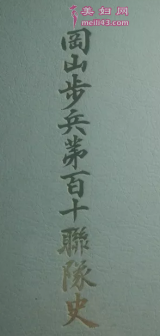 美妇网
meili43.com
岡山步兵第百十聯隊史